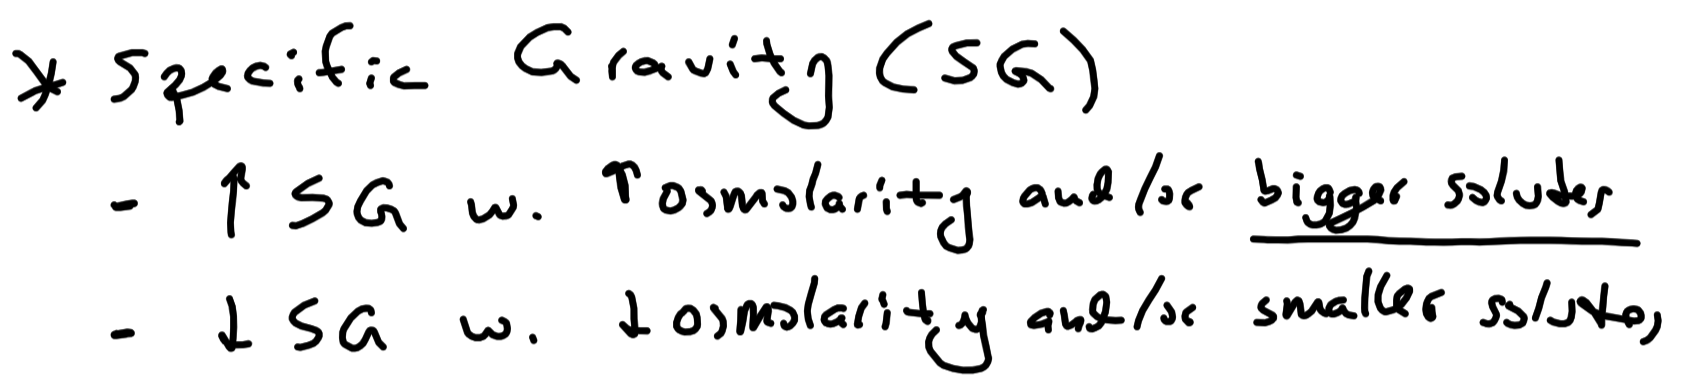 * Specific Gravity (SG)
- ↑ SG w. ↑ osmolarity and/or bigger solutes
- ↓ SG w. ↓ osmolarity and/or smaller solutes